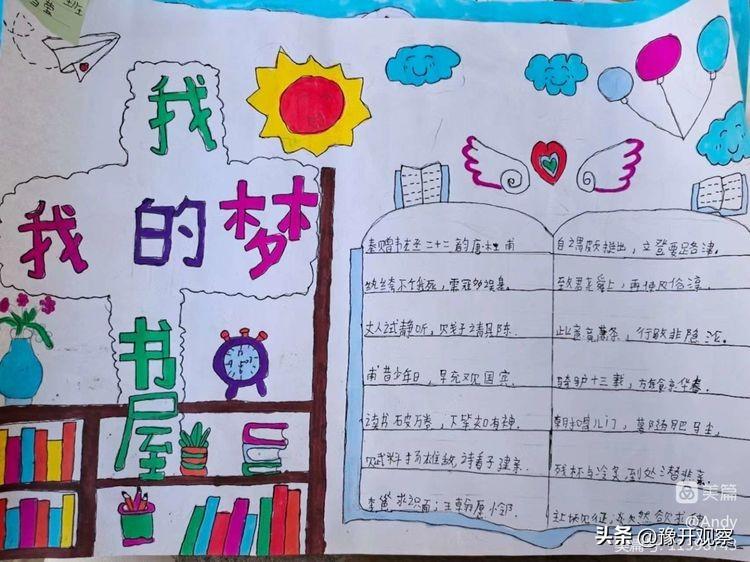 班
我
我的梦
书
屋
奉赠韦左丞二十二韵唐杜甫
丈人试静听，贱子请具陈.
甫昔少年日，早充观国宾.
读书破万卷，下笔如有神.
赋料扬雄敌，诗看子建亲.
李邕求识面，王翰愿卜邻.
自谓颇挺出，立登要路津.
致君尧舜上，再使风俗淳.
此意竟萧条，行歌非隐沦.
骑驴十三载，旅食京华春.
朝扣富儿门，暮随肥马尘.
残杯与冷炙，到处潜悲辛.
美篇
@Andy
头条 @豫开观察